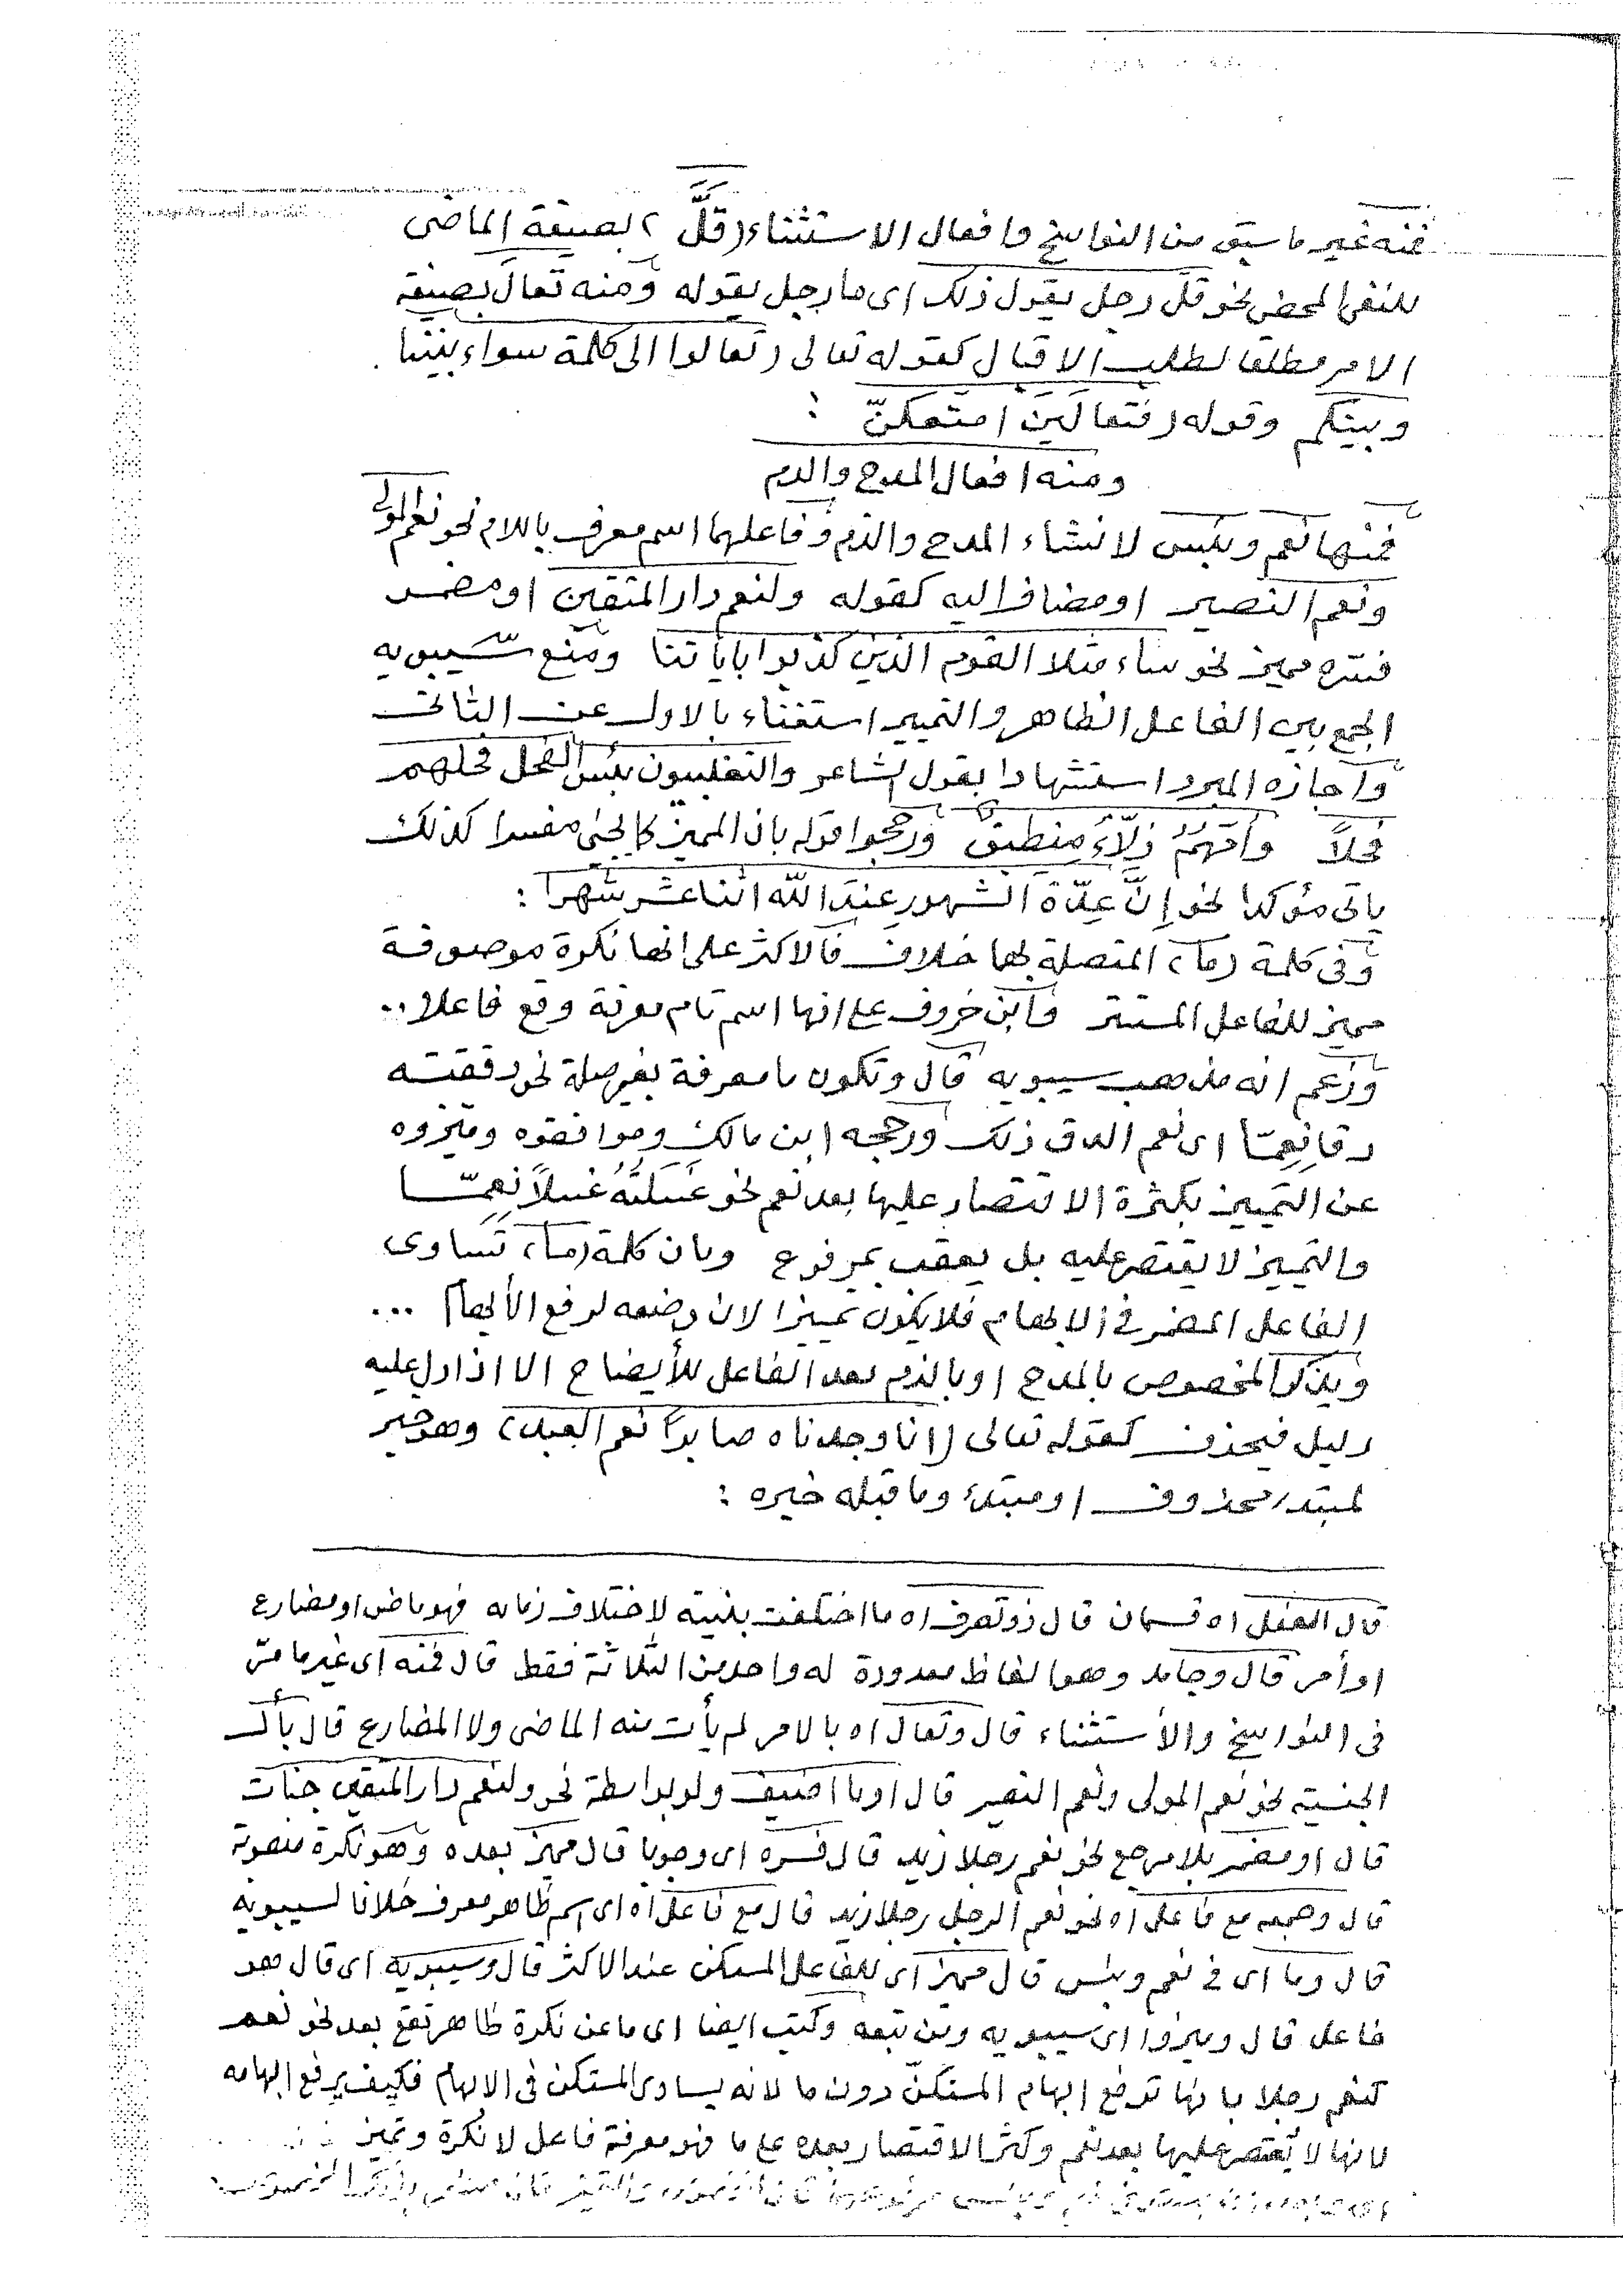 فمنه غير ما سبق من النواسخ وافعال الاستثناء (قَلَّ) بصيغة الماضى
للنفى المحض نحو قلّ رجل يقول ذلك اى ما رجل يقوله ومنه تعالَ بصيغة
الامر مطلقا لطلب الاقبال كقوله تعالى (تعالوا الى كلمة سواء بيننا
وبينكم وقوله (فتعالَيْنَ امتعكنّ :
ومنه افعال المدح والذم
فمنها نعم وبئس لانشاء المدح والذم وفاعلهما اسم معرف باللام نحو نعم المولى
ونعم النصير او مضافا اليه كقوله ولنعم دار المتقين او مضمر
فسره مميز نحو ساء مثلا القوم الذين كذبوا بآياتنا ومنع سيبويه
الجمع بين الفاعل الظاهر والتمييز استغناء بالاول عن الثانى
واجازه المبرد استشهادا بقول الشاعر والتغلبيون بئس الفحل فحلهم
فحلاً وأمّهُمُ زلّاءُ مِنطيقُ ورجحوا قوله بان المميز كما يجئ مفسرا كذلك
ياتى مؤكدا نحو إنَّ عِدّة الشهور عندَ الله اثنا عشر شهرا :
وفى كلمة (ما) المتصلة بهما خلاف فالاكثر على انها نكرة موصوفة
مميز للفاعل المستتر وابن خروف على انها اسم تام معرفة وقع فاعلا ..
وزعم انه مذهب سيبويه قال وتكون ما معرفة بغير صلة نحو دققته
دقا نِعِمّا اى نعم الدق ذلك ورجحه ابن مالك وموافقوه وميزوه
عن التمييز بكثرة الاقتصار عليها بعد نعم نحو غَسَلتُهُ غسلاً نِعِمّا
والتمييز لا يقتصر عليه بل يعقب بمرفوع وبان كلمة (ما) تساوى
الفاعل المضمر فى الابهام فلا يكون تمييزا لان وضعه لرفع الأبهام ...
ويذكر المخصوص بالمدح او بالذم بعد الفاعل للأيضاح الا اذا دل عليه
دليل فيحذف كقوله تعالى (انا وجدناه صابرًا نعم العبد) وهو خبر
لمبتدء محذوف او مبتدأ وما قبله خبره :
قال الفعل اه قسمان قال ذو تصرف اه ما اختلفت بنيته لاختلاف زمانه فهو ماض او مضارع
او أمر قال وجامد وهو الفاظ معدودة له واحد من الثلاثة فقط قال فمنه اى غير ما مرّ
فى النواسخ والأستثناء قال وتعال اه بالامر لم يأت منه الماضى ولا المضارع قال بأل
الجنسية نحو نعم المولى ونعم النصير قال او ما اضيف ولو بواسطة نحو ولنعم دار المتقين جنات
قال او مضمر بلا مرجع نحو نعم رجلا زيد قال فسره اى وجوبا قال مميز بعده وهو نكرة منصوبة
قال وجمعه مع فاعل اه نحو نعم الرجل رجلا زيد قال مع فاعل اه اى اسم ظاهر معرف خلافا لسيبويه
قال وما اى فى نعم وبئس قال مميز اى للفاعل المستكن عند الاكثر قال وسيبويه اى قال هو
فاعل قال وميزوا اى سيبويه ومن تبعه وكتب ايضا اى ما عن نكرة ظاهر تقع بعد نحو نعم
كنعم رجلا بانها ترفع ابهام المستكنّ دون ما لانه يساوى المستكن فى الابهام فكيف يرفع ابهامه
لانها لا يُقتصر عليها بعد نعم وكثر الاقتصار بعده على ما فهو معرفة فاعل لا نكرة وتميز